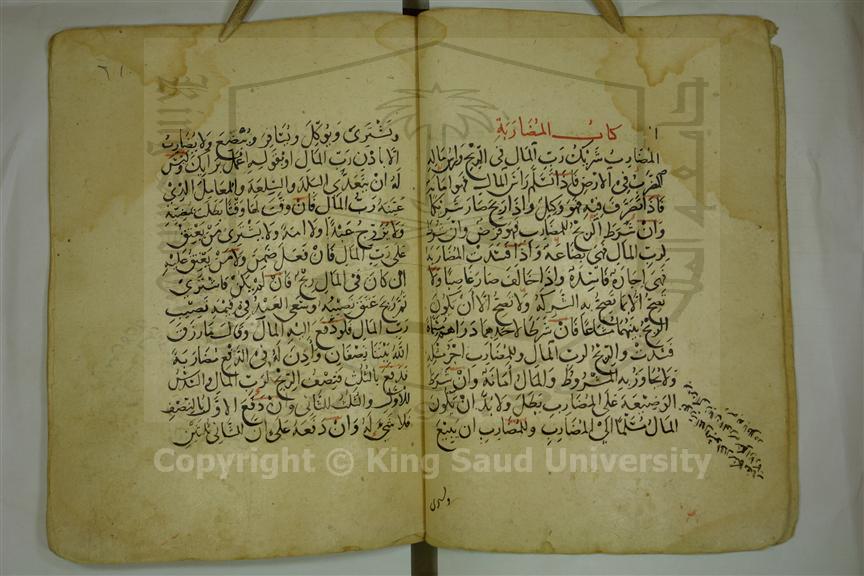 كتاب المضاربة
المضارب شريك رب المال في الربح وراس ماله
الضرب في الارض فاذا تسلم راس المال فهو امانة
فاذا تصرف فيه فهو وكيل واذا ربح صار شريكا
وان شرط الربح للمضارب فهو قرض وان شرط
لرب المال فهي بضاعة واذا فسدت المضاربة
فهي اجارة فاسدة واذا خالف صار غاصبا ولا
تصح الا بما تصح به الشركة ولا تصح الا ان يكون
الربح بينهما مشاعا فان شرط لاحدهما دراهم مسماة
فسدت والربح لرب المال وللمضارب اجر مثله
ولا يجاوز به المشروط والمال امانة وان شرط
الوضيعة على المضارب بطل ولا بد ان يكون
المال مسلما الى المضارب وللمضارب ان يبيع
ويشترى
٦١
ويشترى ويوكل ويسافر ويبضع ولا يضارب
الا باذن رب المال او بقوله اعمل برايك وليس
له ان يتعدى البلد والسلعة والمعامل الذي
عينه رب المال فان وقت لها وقتا بطلت بمضيه
ولا يزوج عبدا ولا امة ولا يشترى من يعتق
على رب المال فان فعل ضمن ولا من يعتق عليه
ان كان في المال ربح فان لم يكن فاشترى
ثم ربح عتق نصيبه وسعى العبد في قيمة نصيب
رب المال فلو دفع اليه المال وقال ما رزق
الله بيننا نصفان واذن له في الدفع مضاربة
فدفع بالثلث فنصف الربح لرب المال والسدس
للاول والثلث للثاني وان دفع الاول بالنصف
فلا شيء له وان دفعه على ان للثاني الثلثين
Copyright © King Saud University